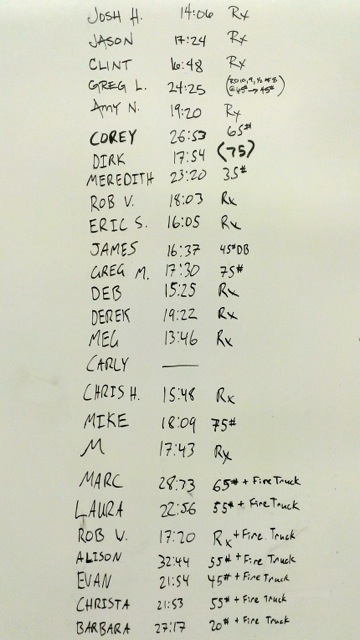 JOSH H. 14:06 Rx
JASON 17:24 Rx
CLINT 16:48 Rx
GREG L. 24:25 @45# → 45#)
AMY N. 19:20 Rx
COREY 26:53 65#
DIRK 17:54 (75)
MEREDITH 23:20 35#
ROB V. 18:03 Rx
ERIC S. 16:05 Rx
JAMES 16:37 45#DB
GREG M. 17:30 75#
DEB 15:25 Rx
DEREK 19:22 Rx
MEG 13:46 Rx
CARLY —
CHRIS H. 15:48 Rx
MIKE 18:09 75#
M 17:43 Rx
MARC 28:73 65# + Fire Truck
LAURA 22:56 55# + Fire Truck
ROB V. 17:20 Rx + Fire Truck
ALISON 32:44 35# + Fire Truck
EVAN 21:54 45# + Fire Truck
CHRISTA 21:53 55# + Fire Truck
BARBARA 27:17 20# + Fire Truck